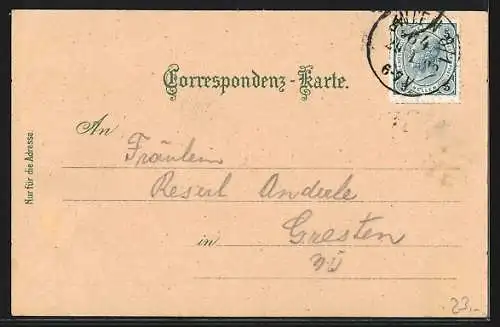 Correspondenz-Karte.
An
Fräulein
Reserl
in
Gresten
Nur für die Adresse.
23.-